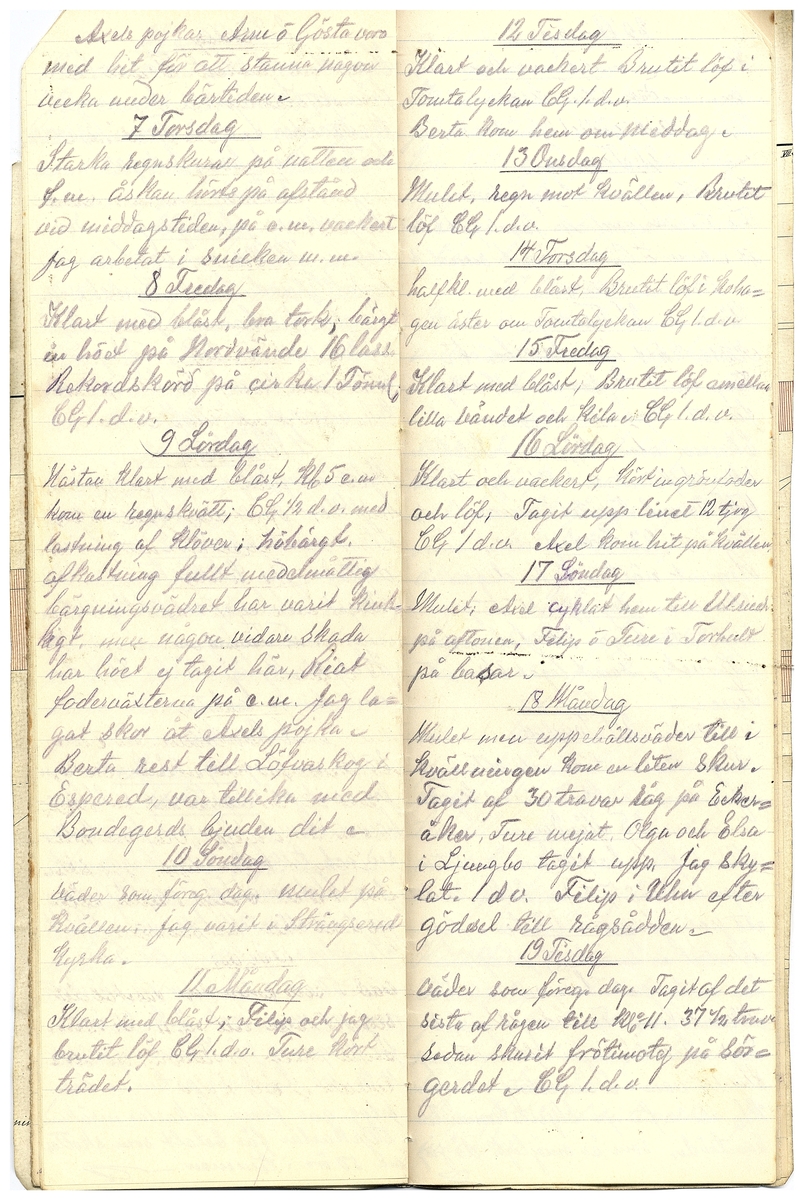 Axels pojkar Arne o Gösta voro
med hit för att stanna någon
vecka under bärtiden.
7 Torsdag
Starka regnskurar på natten och
f.m. åskan hörts på afstånd
vid middagstiden, på e.m. vackert
jag arbetat i smicken m.m.
8 Fredag
Klart med blåst, bra tork, bärgt
in höet på Nordvände 16 lass.
Rekordskörd på cirka 1 Tönnl,
CG 1. d.v.
9 Lördag
Nästan klart med blåst, Kl. 5 e.m
kom en regnskvätt; CG 1/2 d.v. med
lastning af klöver; höbärgt.
afkastning fullt medelmåttig
bärgningsvädret har varit kink-
igt, men någon vidare skada
har höet ej tagit här, Riat
foderväxterna på e.m. Jag la=
gat skor åt Axels pojka.
Berta rest till Löfvaskog i
Espered, var tillika med
Bondegerds bjuden dit.
10 Söndag
väder som föreg. dag. mulet på
kvällen; jag varit i Strängsered
kyrka.
11 Måndag
Klart med blåst; Filip och jag
brutit löf CG 1. d.v. Ture kört
trädet.
12 Tisdag
Klart och vackert Brutit löf i
Tomtalyckan CG. 1. d.v.
Berta kom hem om middag.
13 Onsdag
Mulet, regn mot kvällen, Brutit
löf CG 1. d.v.
14 Torsdag
halfkl. med blåst, Brutit löf i Koha=
gen öster om Tomtalyckan CG 1. d.v
15 Fredag
Klart med blåst; Brutit löf emellan
lilla vändet och Kila. CG 1. d.v.
16 Lördag
Klart och vackert, kört in grönfoder
och löf, Tagit upp linet 12 tjog
CG 1 d.v. Axel kom hit på kvällen,
17 Söndag
Mulet, Axel cyklat hem till
på aftonen, Filip o Ture i Torhult
på basar.
18 Måndag
Mulet men uppehållsväder till i
kvällningen kom en liten skur.
Tagit af 30 travar råg på Ecker=
åker, Ture mejat, Olga och Elsa
i Ljungbo tagit upp, jag sky=
lat. 1 d v. Filip i Uhn efter
gödsel till rågsådden.
19 Tisdag
väder som föreg. dag. Tagit af det
sista af rågen till Kl. 11. 37 1/2 trave
sedan skurit frötimotej på Sör=
gerdet. CG 1. d.v.